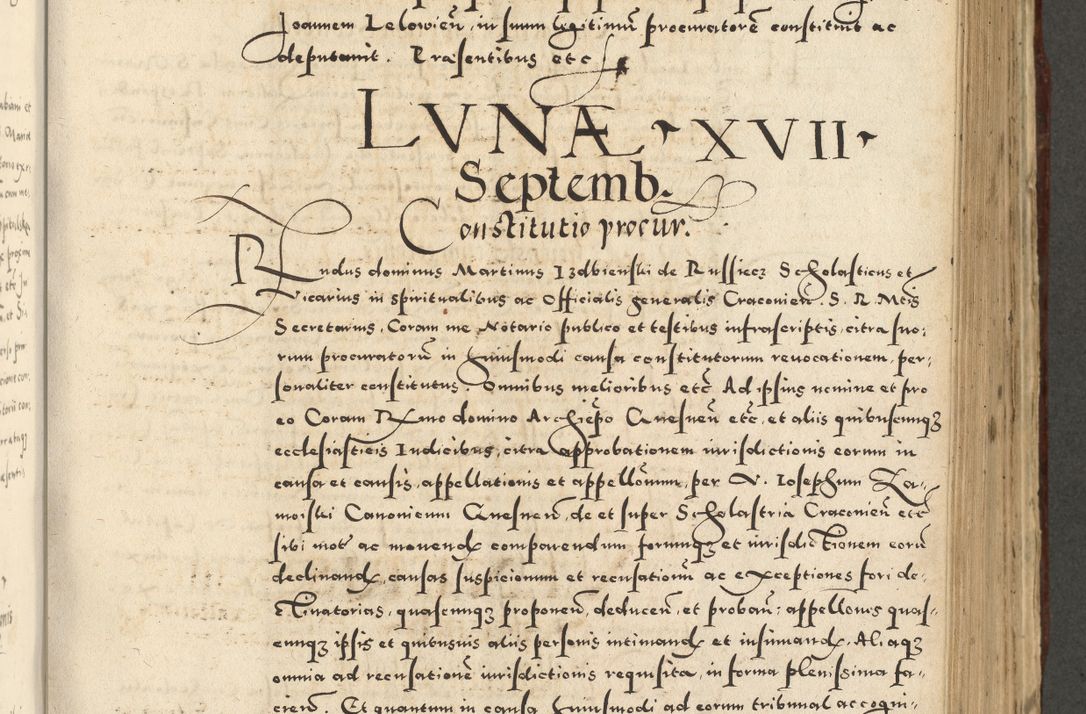 Joannem Lelowień, in suum legitimū procuratorē constituit ac
deputauit. Præsentibus etc
LVNÆ XVII
Septemb.
Constitutio procur.
Rndus dominus Martinus Izdbienski de Russiecz Scholasticus et
Vicarius in spiritualibus ac Officialis generalis Cracouień. S. R. Mtis
Secretarius, Coram me Notario publico et testibus infrascriptis, citra suo-
rum procuratorū in huiusmodi causa constitutorum reuocationem, per-
sonaliter constitutus, Omnibus melioribus etc̃ Ad ipsius nomine et pro
eo Coram Rmo domino Archiepo Gnesneń etc̃, et aliis quibuscunqȝ
ecclesiasticis Iudicibus, citra approbationem iurisdictionis eorum in
causa et causis, appellationis et appellōnum, per V. Iosephum Za-
moiski Canonicum Gnesneń, de et super Scholastria Cracouień etc̃
sibi mot̃ ac mouend comparendum forumqȝ et iurisdictionem eorū
declinand, causas suspicionum et recusationū ac exceptiones fori de-
clinatorias, quascunqȝ proponeń, deduceń, et probań: appellōnes quas-
cunqȝ ipsis et quibusuis aliis personis intimand et insinuand. Aliaqȝ
omnia ad recusationē iurisdictionis requisita, in forma plenissima fa-
cień. Et quantum in causa huiusmodi ad eorum tribunal ac cogni-